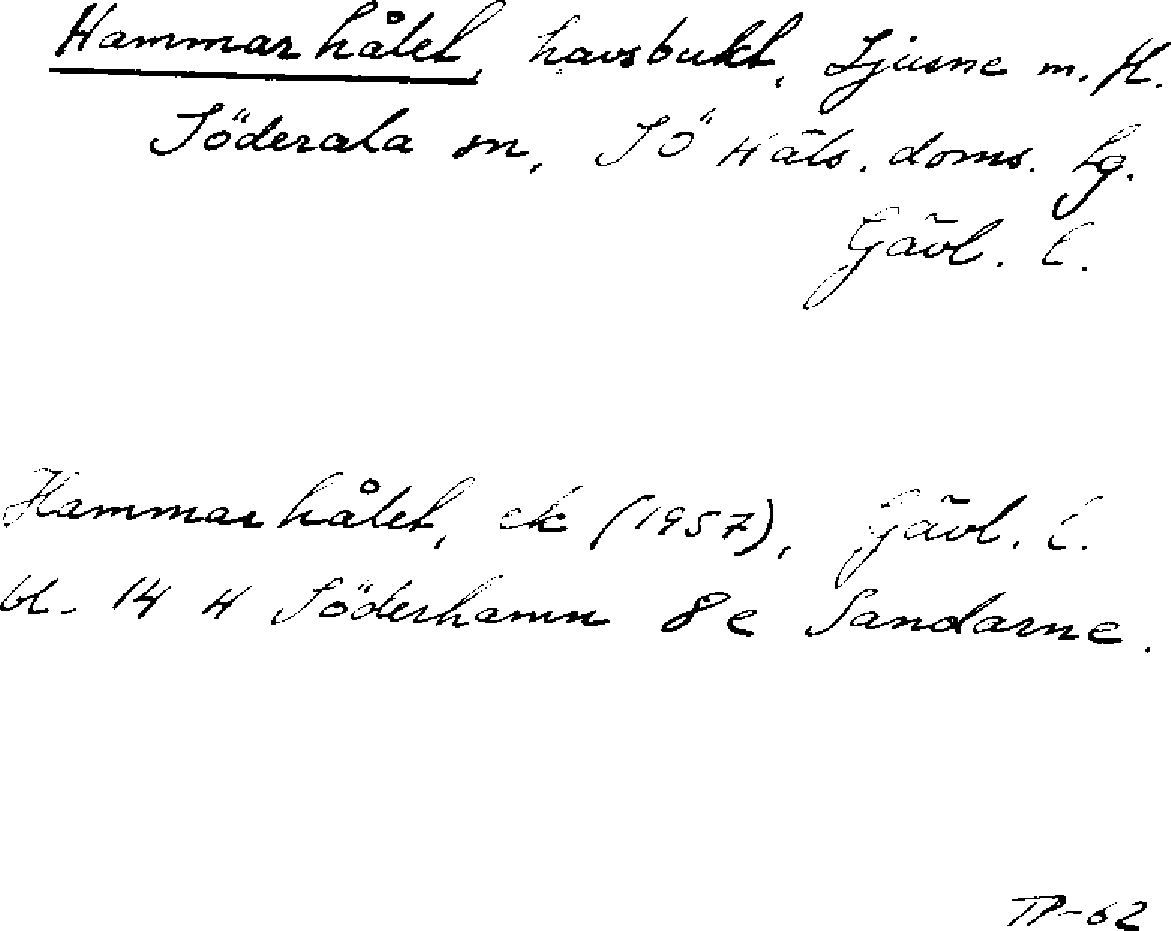 Hammarhålet, havsbukt, Ljusne m. fl.
Söderala sn, SÖ Häls. doms. lg.
Gävl. l.
Hammarhålet, ek (1957), Gävl. l.
bl. 14 H Söderhamn 8e Sandarne.
TP-62